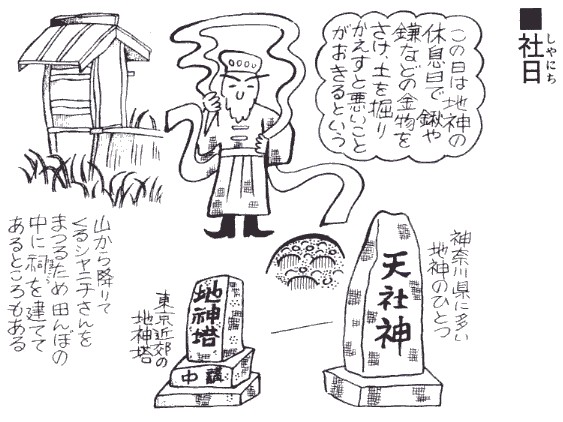 ■社日
しゃにち
この日は地神の
休息日で、鍬や
鎌などの金物を
さけ、土を掘り
かえすと悪いこと
がおきるという
神奈川県に多い
地神のひとつ
天社神
東京近郊の
地神塔
地神塔
中講
山から降りて
くるシャニチさんを
まつるため田んぼの
中に祠を建てて
あるところもある